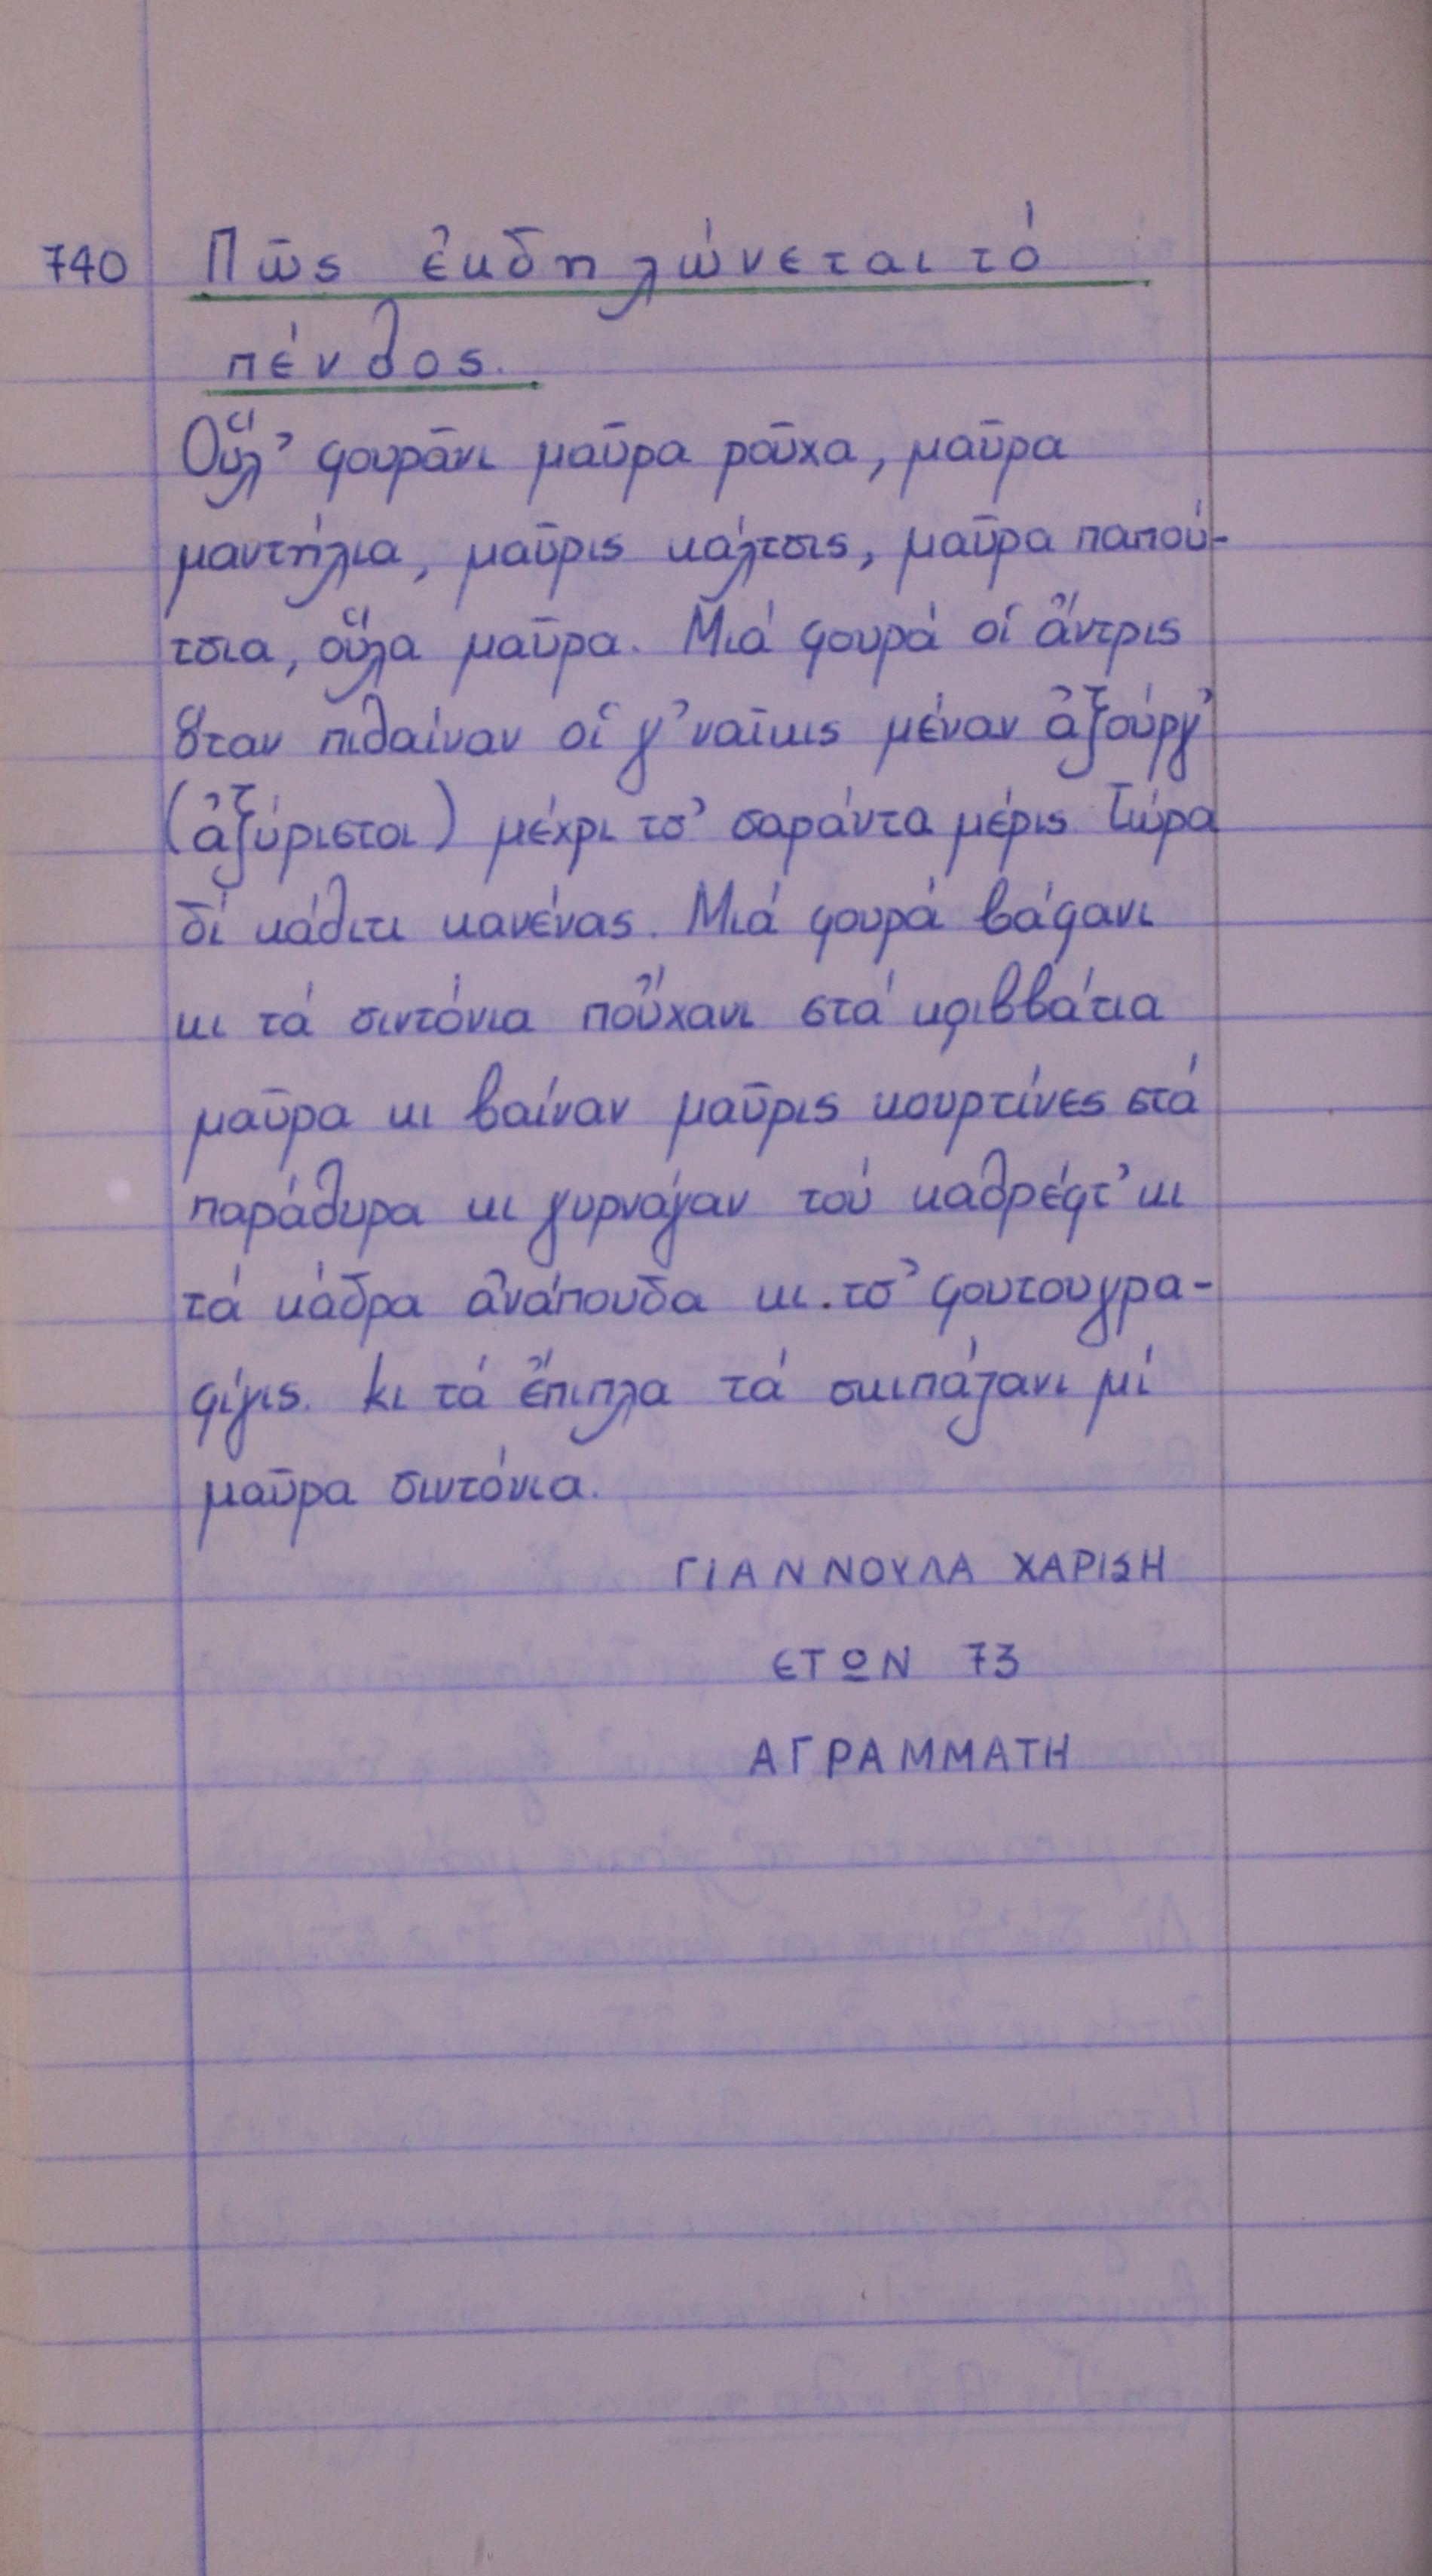 740 Πῶς ἐκδηλώνεται τό
πένθος.
Οὕλ' φουρᾶνι μαῦρα ροῦχα, μαῦρα
μαντήλια, μαῦρις κάλτσις, μαῦρα παπού-
τσια, οὕλα μαῦρα. Μιά φουρά οἱ ἄντρις
ὅταν πιθαίναν οἱ γ'ναῖκις μέναν ἀξούργ'
(ἀξύριστοι) μέχρι τσ' σαράντα μέρις Τώρα
δί κάθιτι κανένας. Μιά φουρά βάφανι
κι τά σιντόνια ποὔχανι στά κριββάτια
μαῦρα κι βαίναν μαῦρις κουρτίνες στά
παράθυρα κι γυρνάγαν τού καθρέφτ' κι
τά κάδρα ἀνάπουδα κι. τσ' φουτουγρα-
φίγις. Κι τά ἔπιπλα τά σκιπάζανι μί
μαῦρα σιντόνια.
ΓΙΑΝΝΟΥΛΑ ΧΑΡΙΣΗ
ΕΤΩΝ 73
ΑΓΡΑΜΜΑΤΗ